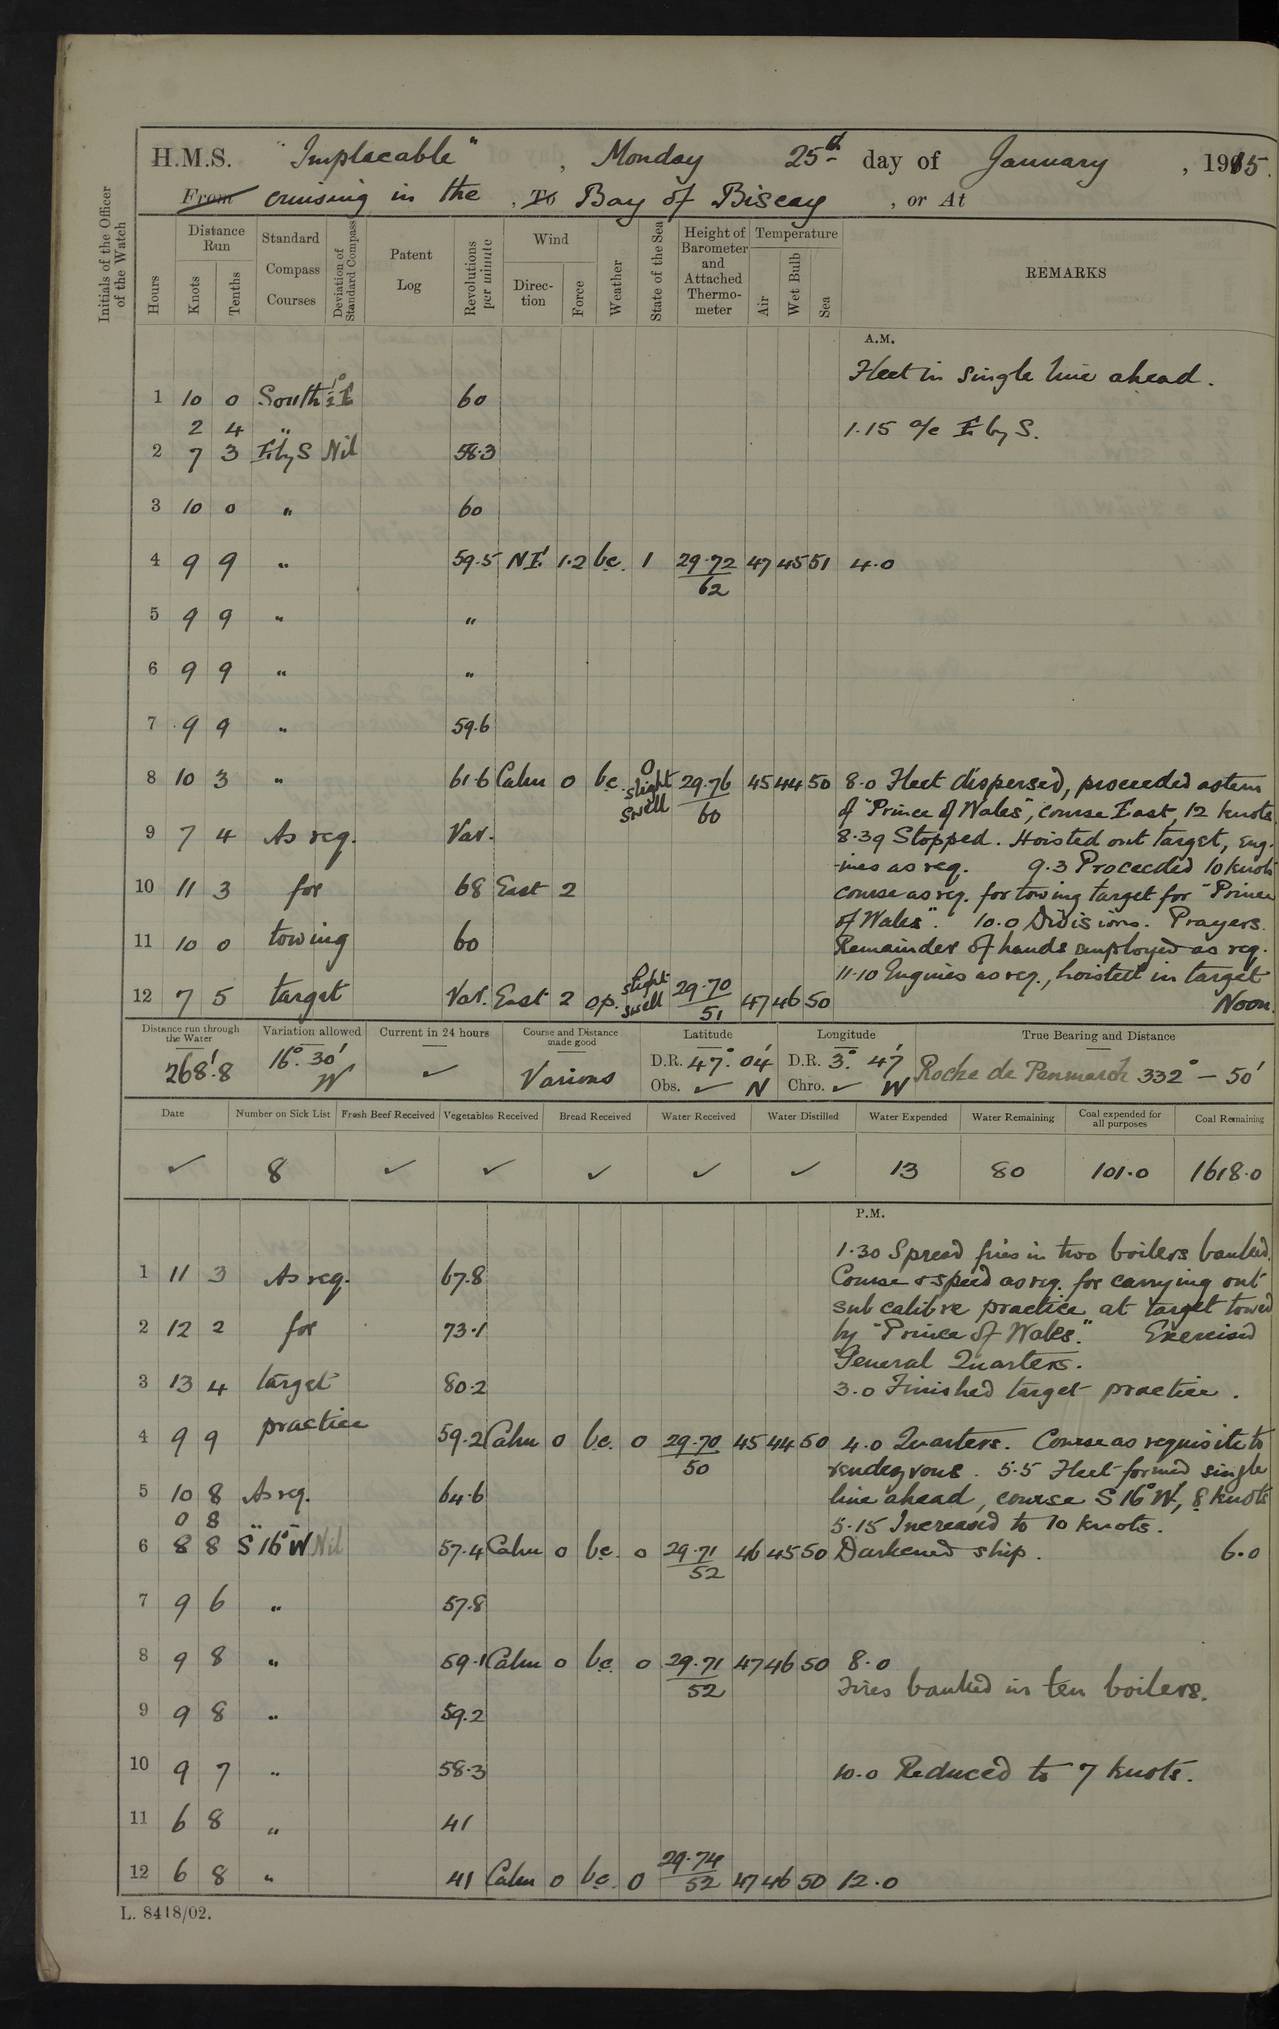 H.M.S. "Implacable", Monday 25th day of January, 1915.
From cruising in the, To Bay of Biscay, or At
Initials of the Officer of the Watch
Hours
Distance Run
Knots
Tenths
Standard Compass Courses
Deviation of Standard Compass
Patent Log
Revolutions per minute
Wind
Direction
Force
Weather
State of the Sea
Height of Barometer and Attached Thermometer
Temperature
Air
Wet Bulb
Sea
REMARKS
A.M.
Fleet in single line ahead.
1 10 0 South ½°E 60
2 4 " 1.15 a/c E by S.
2 7 3 E by S Nil 58.3
3 10 0 " 60
4 9 9 " 59.5 NE 1.2 bc. 1 29.72/62 47 45 51 4.0
5 9 9 " "
6 9 9 " "
7 9 9 " 59.6
8 10 3 " 61.6 Calm 0 bc. 0 slight swell 29.76/60 45 44 50 8.0 Fleet dispersed, proceeded astern
of "Prince of Wales", course East, 12 knots
9 7 4 As req. Var. 8.39 Stopped. Hoisted out target, eng-
-ines as req. 9.3 Proceeded 10 knots
10 11 3 for 68 East 2 course as req. for towing target for "Prince
of Wales". 10.0 Divisions. Prayers.
11 10 0 towing 60 Remainder of hands employed as req.
11.10 Engines as req., hoisted in target
12 7 5 target Var. East 2 op. slight swell 29.70/51 47 46 50 Noon.
Distance run through the Water
Variation allowed
Current in 24 hours
Course and Distance made good
Latitude
Longitude
True Bearing and Distance
268'.8 16° 30' W ✓ Various D.R. 47° 04' D.R. 3° 47' Roche de Penmarch 332° — 50'
Obs. ✓ N Chro. ✓ W
Date Number on Sick List Fresh Beef Received Vegetables Received Bread Received Water Received Water Distilled Water Expended Water Remaining Coal expended for all purposes Coal Remaining
✓ 8 ✓ ✓ ✓ ✓ ✓ 13 80 101.0 1618.0
P.M.
1.30 Spread fires in two boilers banked.
1 11 3 As req. 67.8 Course & speed as req. for carrying out
sub calibre practice at target towed
2 12 2 for 73.1 by "Prince of Wales." Exercised
General Quarters.
3 13 4 target 80.2 3.0 Finished target practice.
4 9 9 practice 59.2 Calm 0 bc. 0 29.70/50 45 44 50 4.0 Quarters. Course as requisite to
rendezvous. 5.5 Fleet formed single
5 10 8 As req. 64.6 line ahead, course S 16° W, 8 knots
0 8 " 5.15 Increased to 10 knots.
6 8 8 S 16° W Nil 57.4 Calm 0 bc. 0 29.71/52 46 45 50 Darkened ship. 6.0
7 9 6 " 57.8
8 9 8 " 59.1 Calm 0 bc. 0 29.71/52 47 46 50 8.0
Fires banked in ten boilers.
9 9 8 " 59.2
10 9 7 " 58.3 10.0 Reduced to 7 knots.
11 6 8 " 41
12 6 8 " 41 Calm 0 bc. 0 29.74/52 47 46 50 12.0
L. 8418/02.